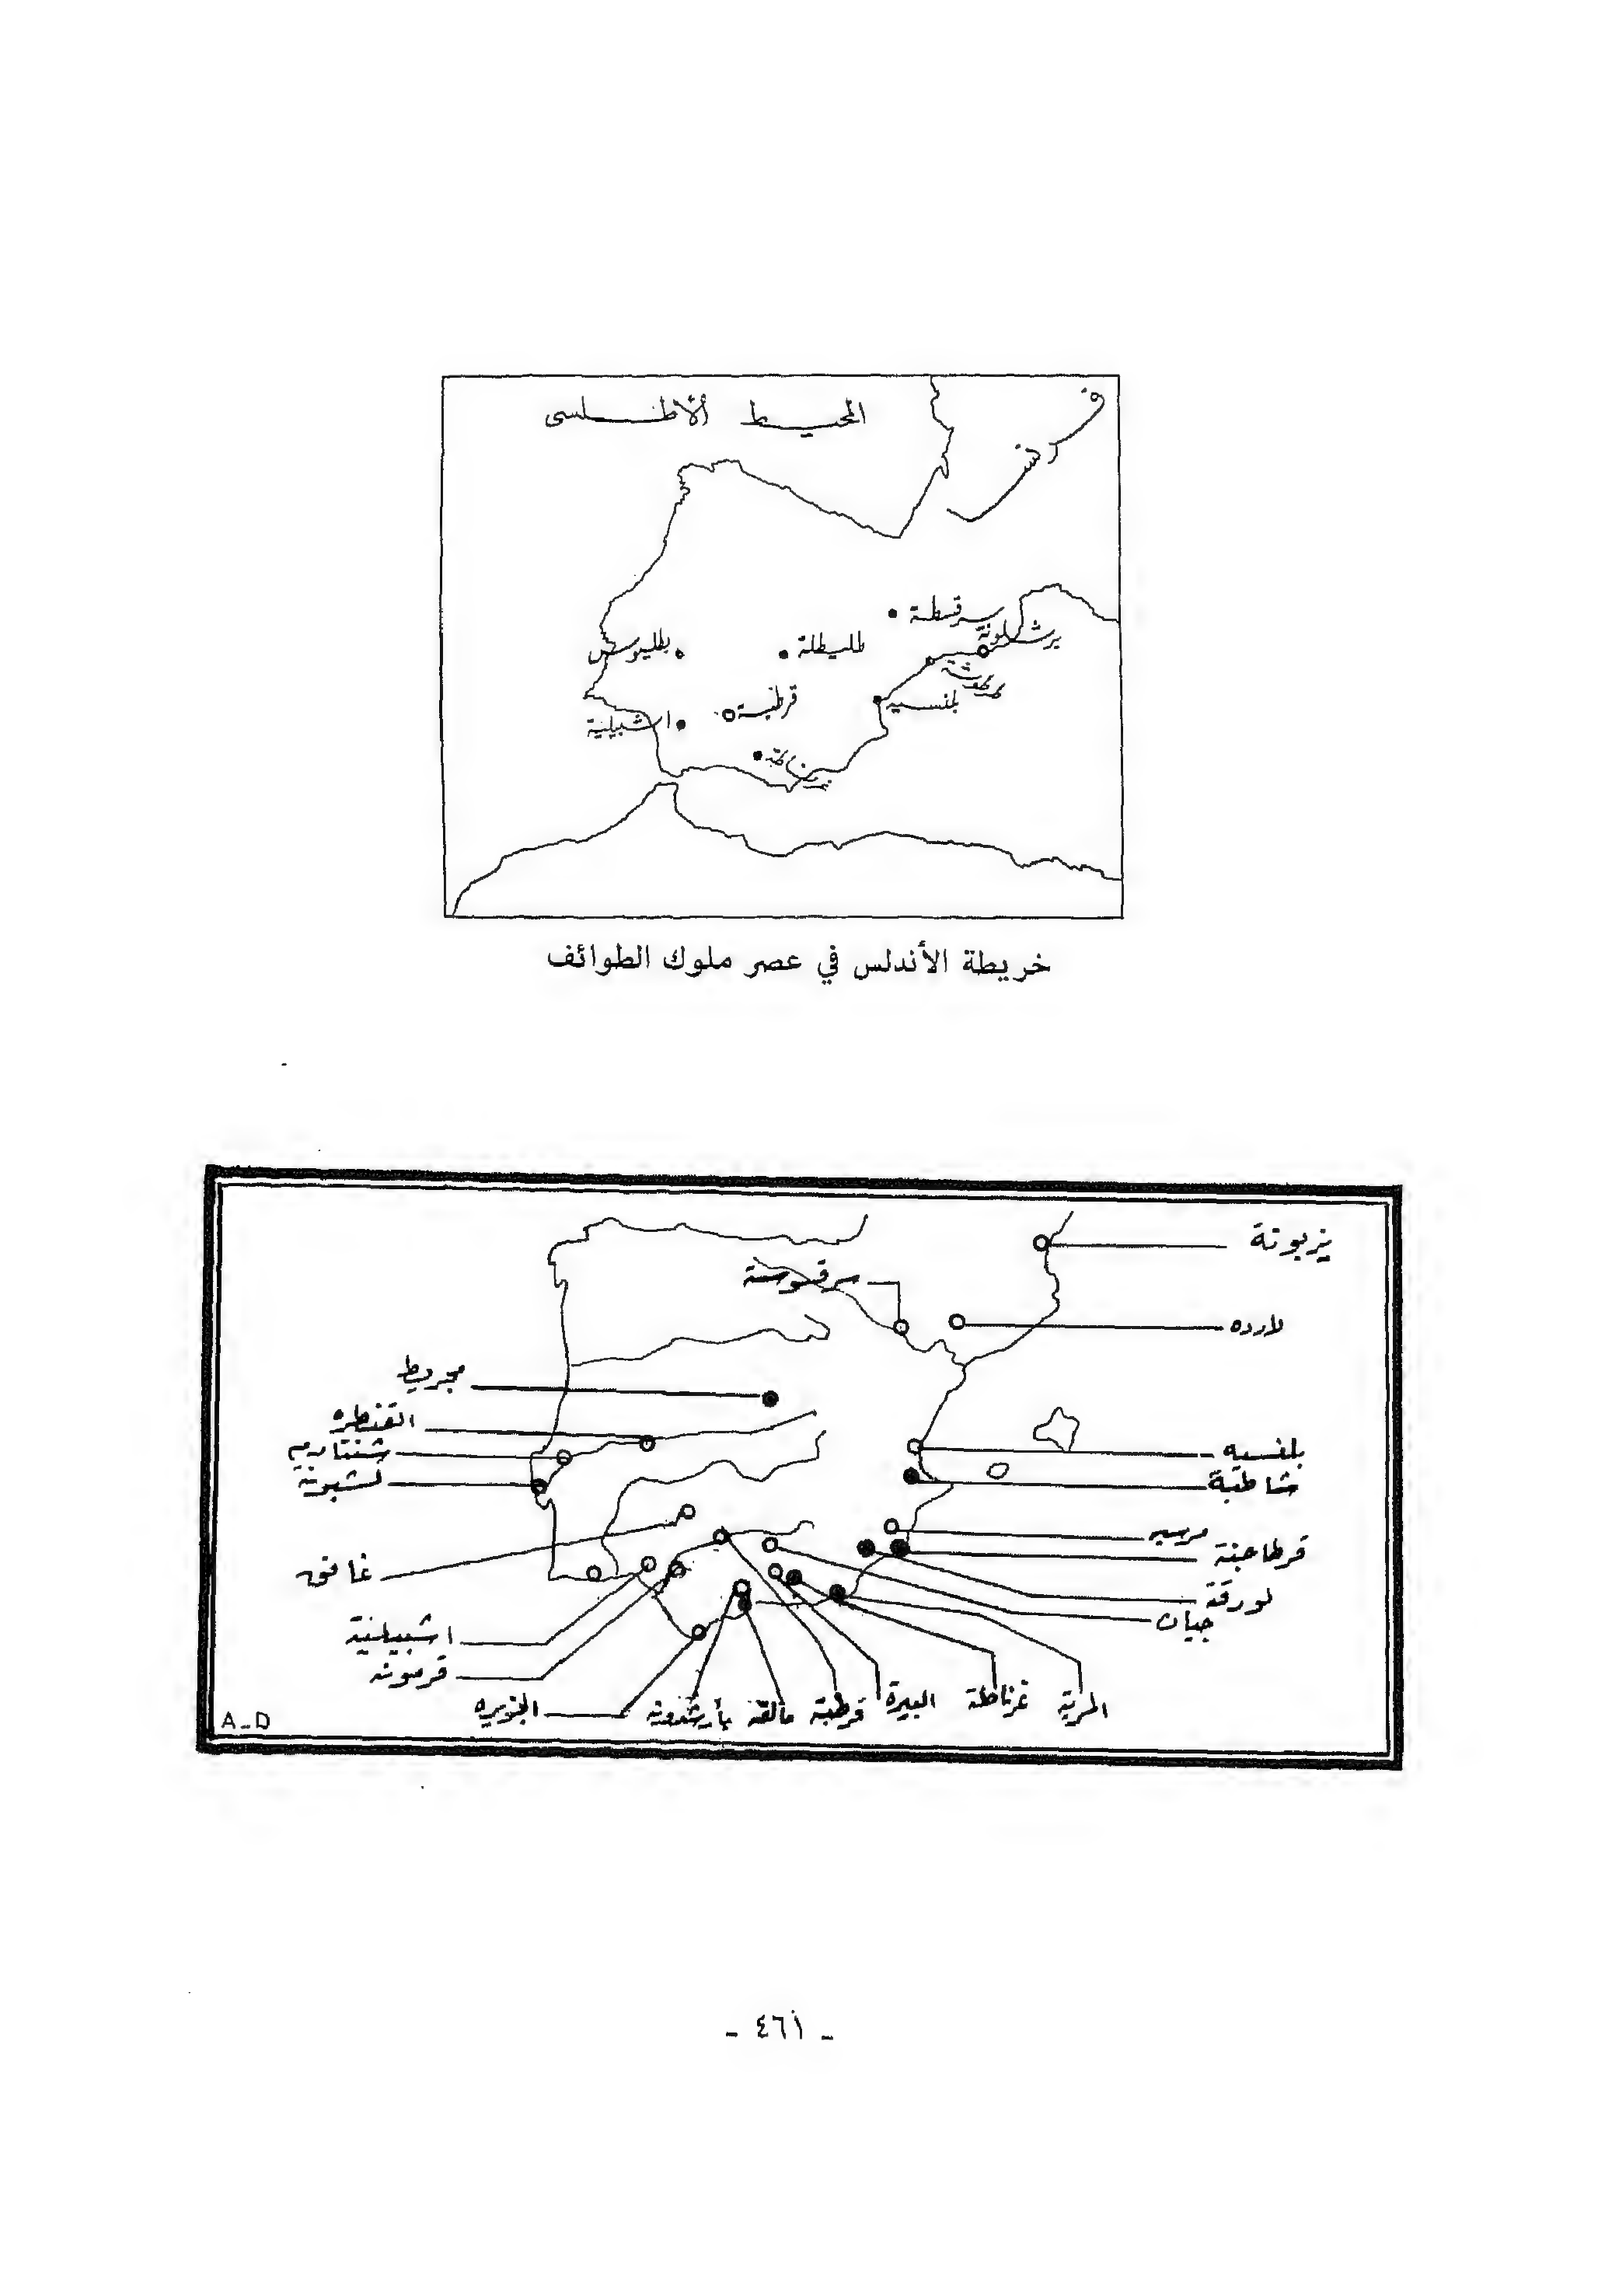 المحيط الأطلسى
فرنسا
سرقسطة
برشلونة
طليطلة
بطليوس
طرطوشة
قرطبة
بلنسيه
اشبيلية
غرناطة
خريطة الأندلس في عصر ملوك الطوائف
سرقوسة
لارده
مجريط
القنطره
شنتاريم
لشبونة
بلنسيه
شاطبة
مرسيه
قرطاجنة
لورقة
جيان
غافق
اشبيلية
قرمونه
الجزيره
بأرشدونه
مالقه
قرطبة
البيرة
غرناطة
المرية
A-D
- ٤٦١ -